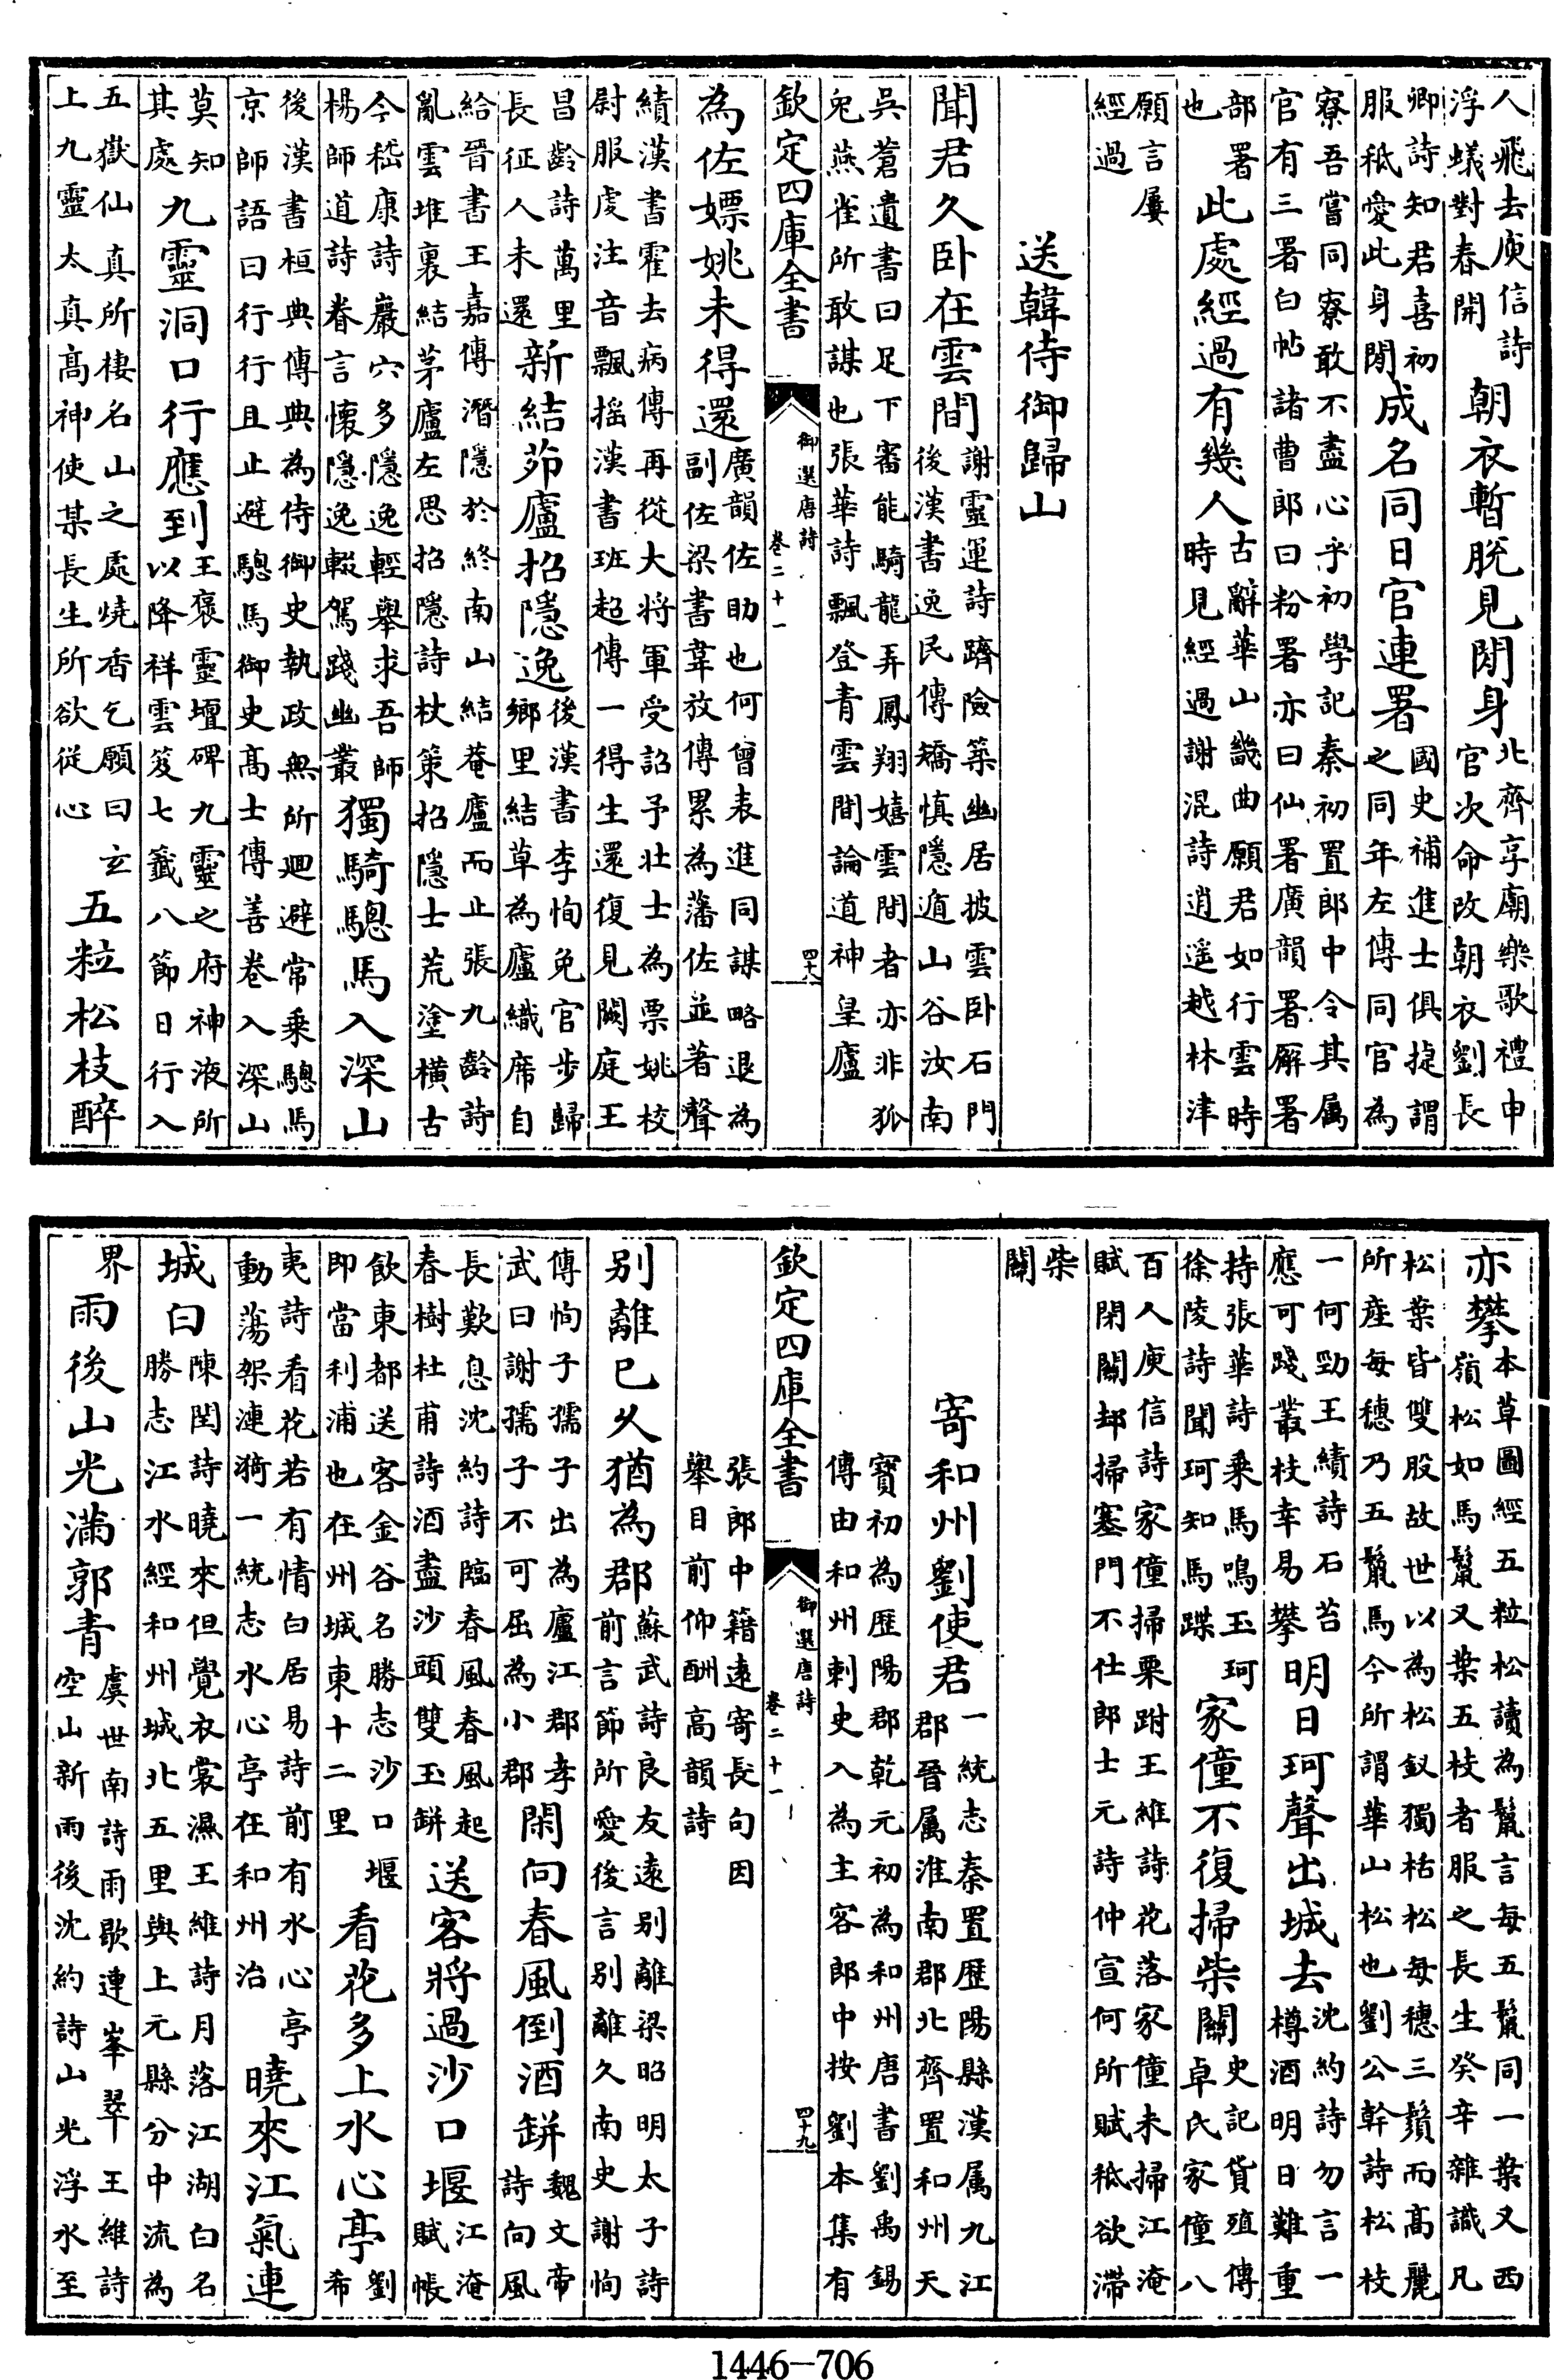 人飛去庾信詩浮蟻對春開朝衣暫脫見閒身北齊享廟樂歌禮中官次命改朝衣劉長
卿詩知君喜初服秪愛此身閒成名同日官連署國史補進士俱捷謂之同年左傳同官為
寮吾嘗同寮敢不盡心乎初學記秦初置郎中令其属
官有三署白帖諸曹郎曰粉署亦曰仙署廣韻署廨署
部署也此處經過有幾人古辭華山畿曲願君如行雲時時見經過謝混詩逍遥越林津
願言屢
經過
送韓侍御歸山
聞君久卧在雲間謝靈運詩躋險築幽居披雲卧石門後漢書逸民傳矯慎隱遁山谷汝南
吳蒼遺書曰足下審能騎龍弄鳳翔嬉雲間者亦非狐
兔燕雀所敢謀也張華詩飄登青雲間論道神皇廬
欽定四庫全書
御選唐詩
卷二十一
四十八
為佐嫖姚未得還廣韻佐助也何曾表進同謀略退為副佐梁書韋放傳累為藩佐並著聲
績漢書霍去病傳再從大將軍受詔予壮士為票姚校
尉服虔注音飄摇漢書班超傳一得生還復見闕庭王
昌齡詩萬里長征人未還新結茆廬招隱逸後漢書李恂免官步歸鄉里結草為廬織席自
給晉書王嘉傳潛隱於終南山結菴廬而止張九齡詩
亂雲堆裏結茅廬左思招隱詩杖策招隱士荒塗横古
今嵇康詩巖穴多隱逸輕舉求吾師楊師道詩眷言懷隱逸輟駕踐幽叢獨騎驄馬入深山
後漢書桓典傳典為侍御史執政無所迴避常乗驄馬
京師語曰行行且止避驄馬御史高士傳善卷入深山
莫知其處九靈洞口行應到王褒靈壇碑九靈之府神液所以降祥雲笈七籖八節日行入
五嶽仙真所棲名山之處燒香乞願曰玄上九靈太真高神使某長生所欲從心五粒松枝醉
亦攀本草圖經五粒松讀為鬣言每五鬣同一葉又西嶺松如馬鬣又葉五枝者服之長生癸辛雜識凡
松葉皆雙股故世以為松釵獨栝松每穗三鬚而高麗
所産每穗乃五鬣馬今所謂華山松也劉公幹詩松枝
一何勁王績詩石苔應可踐叢枝幸易攀明日珂聲出城去沈約詩勿言一樽酒明日難重
持張華詩乗馬鳴玉珂徐陵詩聞珂知馬蹀家僮不復掃柴關史記貨殖傳卓氏家僮八
百人庾信詩家僮掃栗跗王維詩花落家僮未掃江淹
賦閉關却掃塞門不仕郎士元詩仲宣何所賦秪欲滯
柴
關
寄和州劉使君一統志秦置歴陽縣漢属九江郡晉属淮南郡北齊置和州天
寳初為歴陽郡乾元初為和州唐書劉禹錫
傳由和州刺史入為主客郎中按劉本集有
欽定四庫全書
御選唐詩
卷二十一
四十九
張郎中籍遠寄長句因
舉目前仰酬高韻詩
别離已乆猶為郡蘇武詩良友遠别離梁昭明太子詩前言節所愛後言别離久南史謝恂
傳恂子孺子出為廬江郡孝武曰謝孺子不可屈為小郡閑向春風倒酒缾魏文帝詩向風
長歎息沈約詩臨春風春風起春樹杜甫詩酒盡沙頭雙玉缾送客將過沙口堰江淹賦帳
飲東都送客金谷名勝志沙口堰即當利浦也在州城東十二里看花多上水心亭劉希
夷詩看花若有情白居易詩前有水心亭動蕩架漣漪一統志水心亭在和州治曉來江氣連
城白陳閏詩曉來但覺衣裳濕王維詩月落江湖白名勝志江水經和州城北五里與上元縣分中流為
界雨後山光滿郭青虞世南詩雨歇連峯翠王維詩空山新雨後沈約詩山光浮水至
1446—706